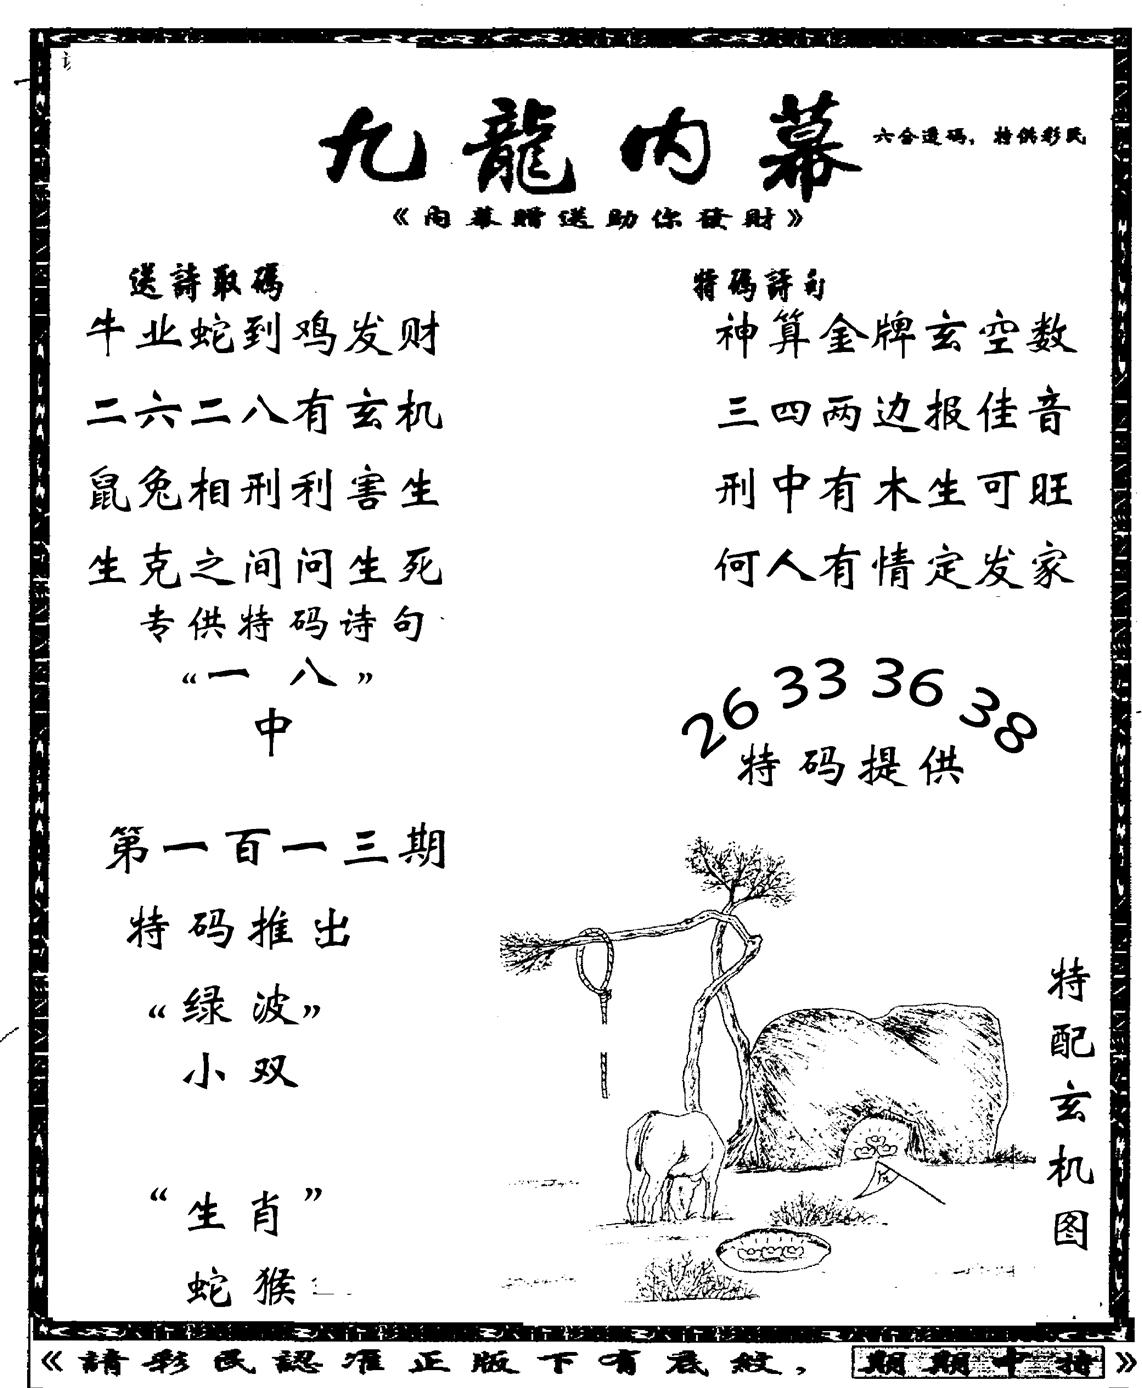 九龍内幕
六合透碼，特供彩民
《内幕贈送助你發財》
送詩取碼
牛业蛇到鸡发财
二六二八有玄机
鼠兔相刑利害生
生克之间问生死
专供特码诗句
“一八”
中
特碼詩句
神算金牌玄空数
三四两边报佳音
刑中有木生可旺
何人有情定发家
26 33 36 38
特码提供
第一百一十三期
特码推出
“绿波”
小双
“生肖”
蛇猴
特配玄机图
《請彩民認准正版下有底紋，期期中特》